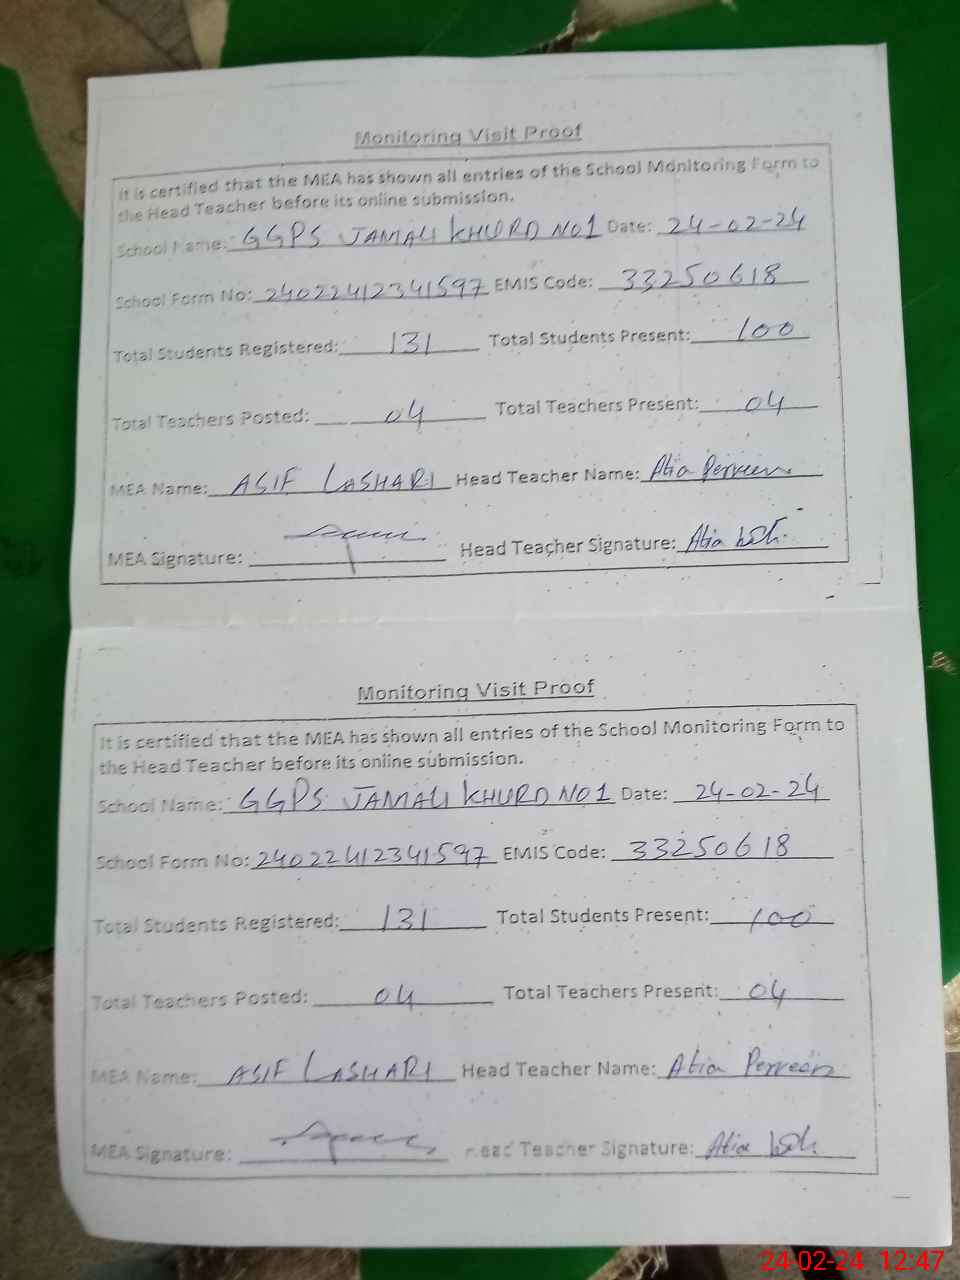 Monitoring Visit Proof
It is certified that the MEA has shown all entries of the School Monitoring Form to
the Head Teacher before its online submission.
School Name: GGPS JAMALI KHURD NO1 Date: 24-02-24
School Form No: 24022412341597 EMIS Code: 33250618
Total Students Registered: 131 Total Students Present: 100
Total Teachers Posted: 04 Total Teachers Present: 04
MEA Name: ASIF LASHARI Head Teacher Name: Atia Perveen
MEA Signature: Head Teacher Signature: Atia
Monitoring Visit Proof
It is certified that the MEA has shown all entries of the School Monitoring Form to
the Head Teacher before its online submission.
School Name: GGPS JAMALI KHURD NO1 Date: 24-02-24
School Form No: 24022412341597 EMIS Code: 33250618
Total Students Registered: 131 Total Students Present: 100
Total Teachers Posted: 04 Total Teachers Present: 04
MEA Name: ASIF LASHARI Head Teacher Name: Atia Perveen
MEA Signature: Head Teacher Signature: Atia
24-02-24 12:47